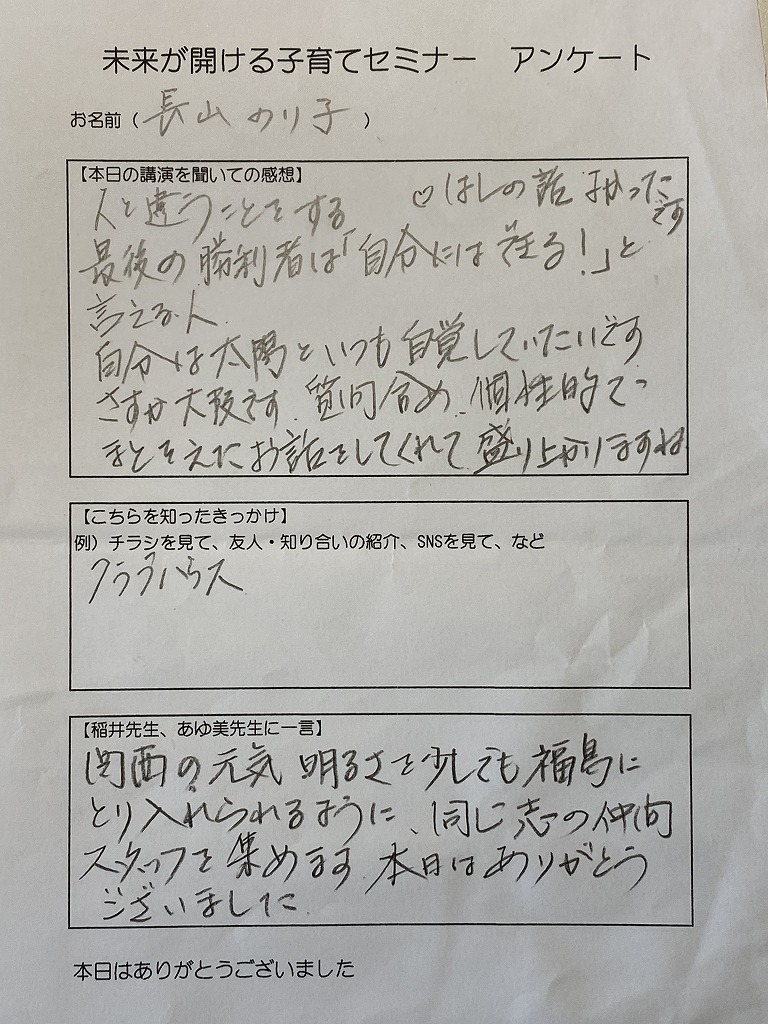 未来が開ける子育てセミナー　アンケート
お名前（長山 のり子）
【本日の講演を聞いての感想】
♡はしの話 よかったです
人と違うことをする
最後の勝利者は「自分には在る!」と
言える人
自分は太陽といつも自覚していたいです
さすが大阪です. 質問含め 個性的で
まとを えた お話をしてくれて 盛り上がりますね
【こちらを知ったきっかけ】
例）チラシを見て、友人・知り合いの紹介、SNSを見て、など
クラブハウス
【稲井先生、あゆ美先生に一言】
関西の元気 明るさを少しでも福島に
とり入れられるように、同じ志の仲間
スタッフを集めます 本日はありがとう
ございました
本日はありがとうございました